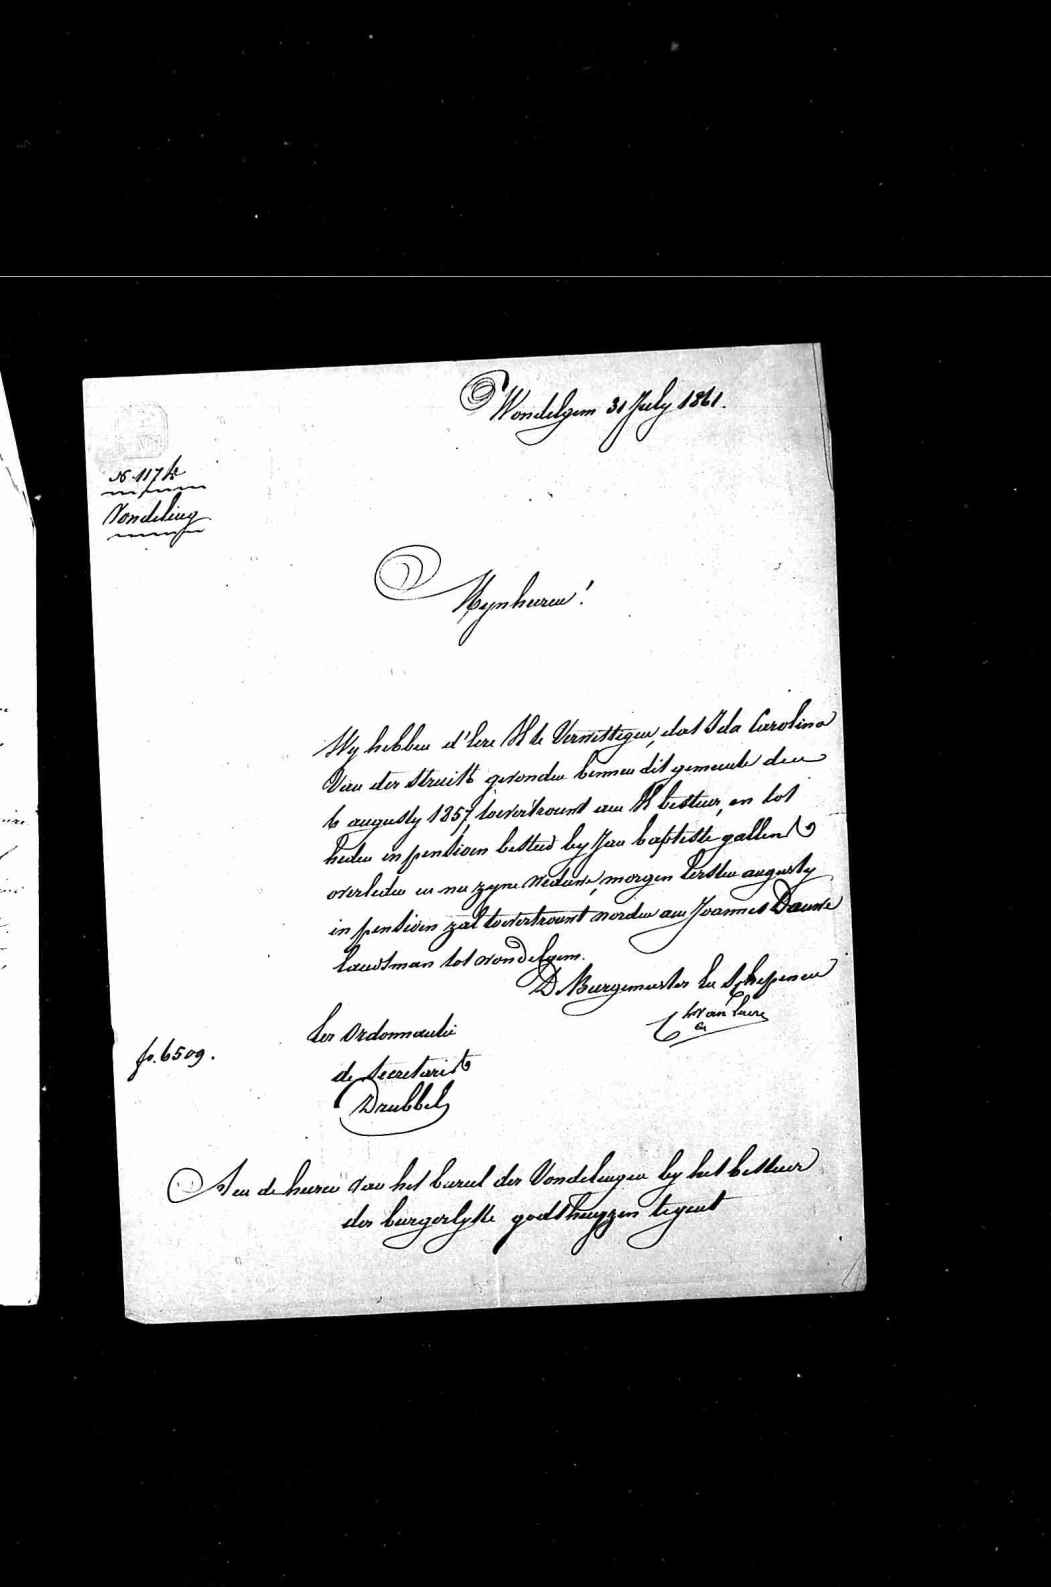 Wondelgem 31 July 1861.
N° 1174
Vondeling
Mynheeren!
Wy hebben d'eere UE te Verwittigen, dat Ida Carolina
Van der Struitt gevonden binnen dit gemeente den
6 augusty 1857, toevertrouwt aen UE bestuer, en tot
heden in pensioen besteed by Jan baptiste gallent
overleden en nu zyne Weduwe, morgen Eersten augusty
in pensioen zal toevertrouwt worden aen Joannes Dauwe
Landsman tot Wondelgem.
De Burgemeester En Schepenen
Ter Ordonnantie
fo. 6509.
de secretaris
Drubbel
Aen de heeren van het bureel der Vondelingen by het bestuer
der burgerlyke godshuyzen te gent